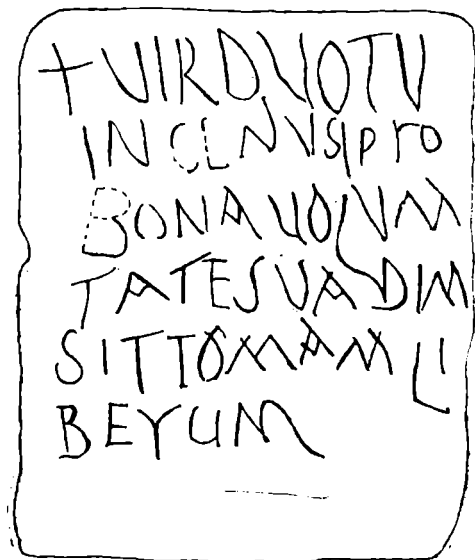 + VIRDUOTU
INCLNVSIPRO
BONAUOLUM
TATESUADIM
SITTOMAMLI
BERUM